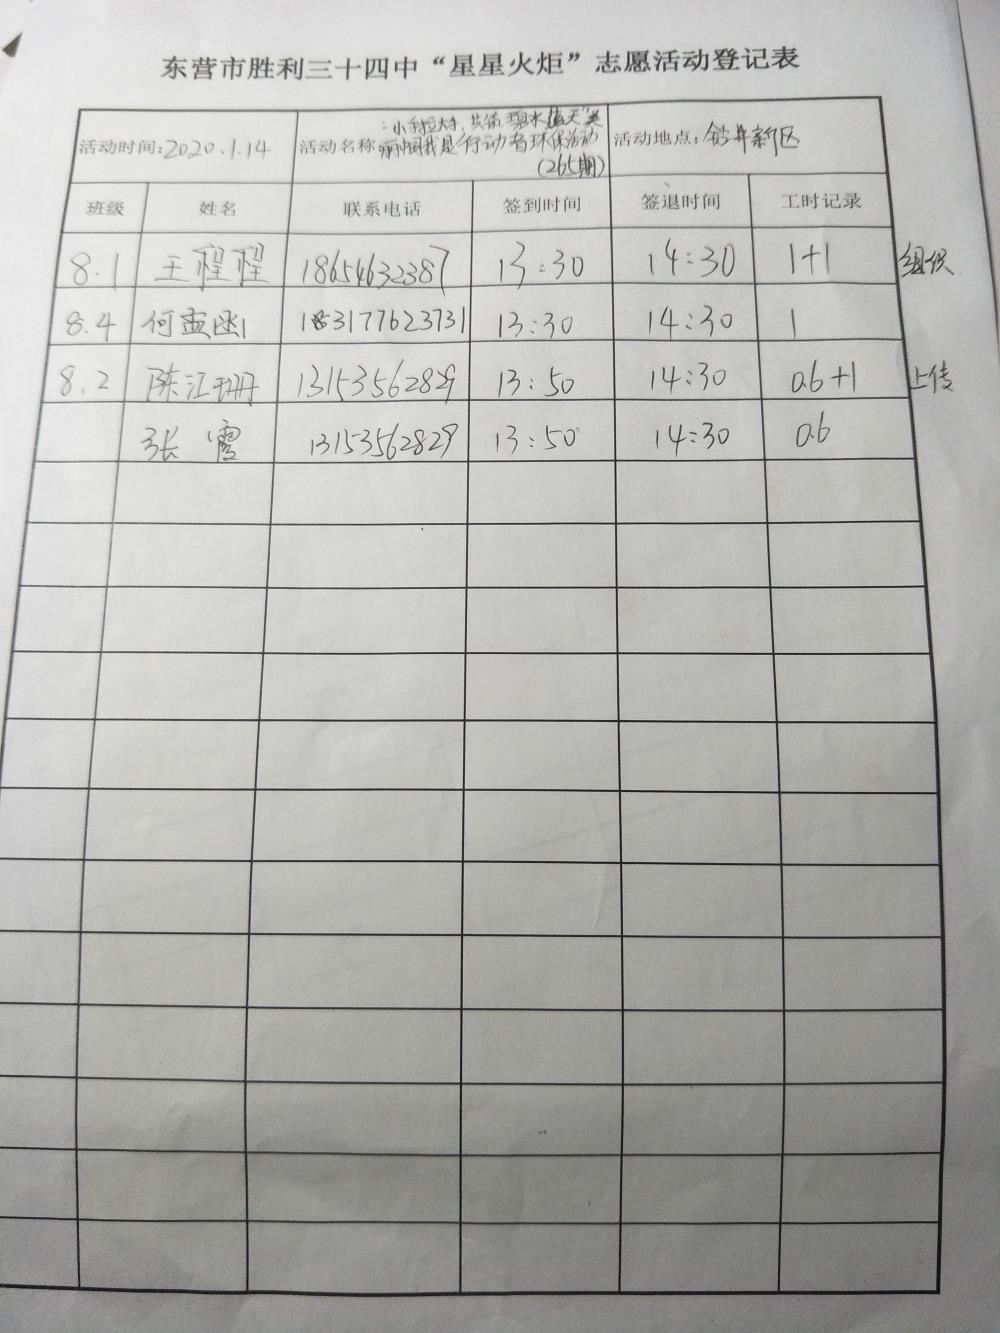 东营市胜利三十四中“星星火炬”志愿活动登记表
活动时间:2020.1.14
活动名称:“小手拉大手,共筑碧水蓝天”美
丽中国我是行动者环保活动
(265期)
活动地点:钻井新区
班级 姓名 联系电话 签到时间 签退时间 工时记录
8.1 王程程 18654632387 13:30 14:30 1+1 组织
8.4 何孟幽 18317762373 13:30 14:30 1
8.2 陈江珊 13153562829 13:50 14:30 0.6+1 上传
张雪 13153562829 13:50 14:30 0.6